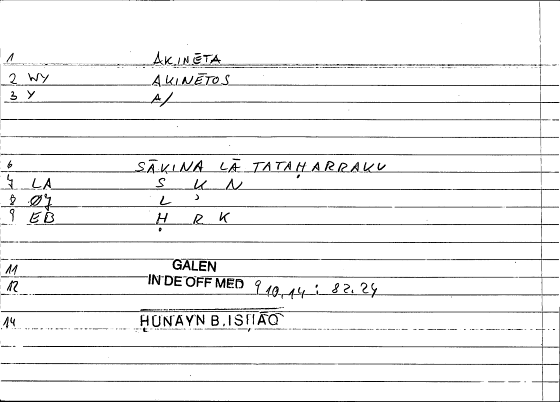 1 AKINĒTA
2 WY AKINĒTOS
3 Y A/
6 SĀKINA LĀ TATAḤARRAKU
7 LA S K N
8 ØJ L ʾ
9 EB Ḥ R K
11 GALEN
12 IN DE OFF MED 910,14 : 82.24
14 ḤUNAYN B. ISḤĀQ